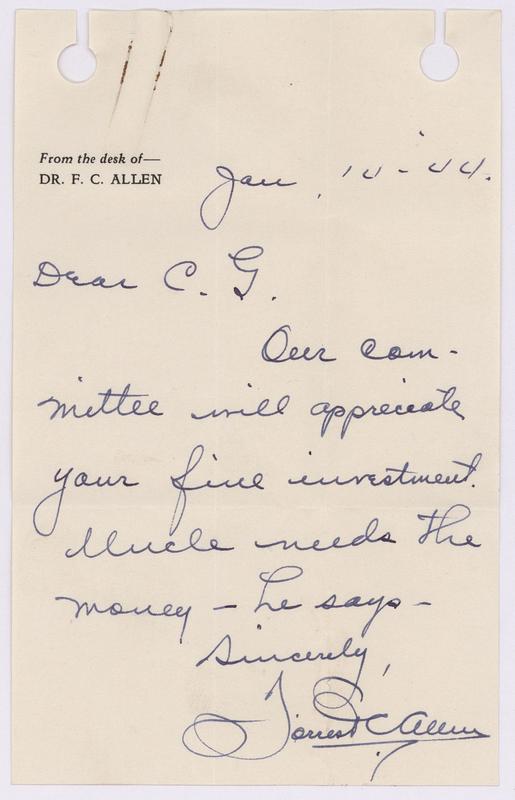 From the desk of—
DR. F. C. ALLEN
Jan. 14-44.
Dear C. G.
Our com-
mittee will appreciate
your fine investment.
Uncle needs the
money - he says -
Sincerely,
Forrest C Allen